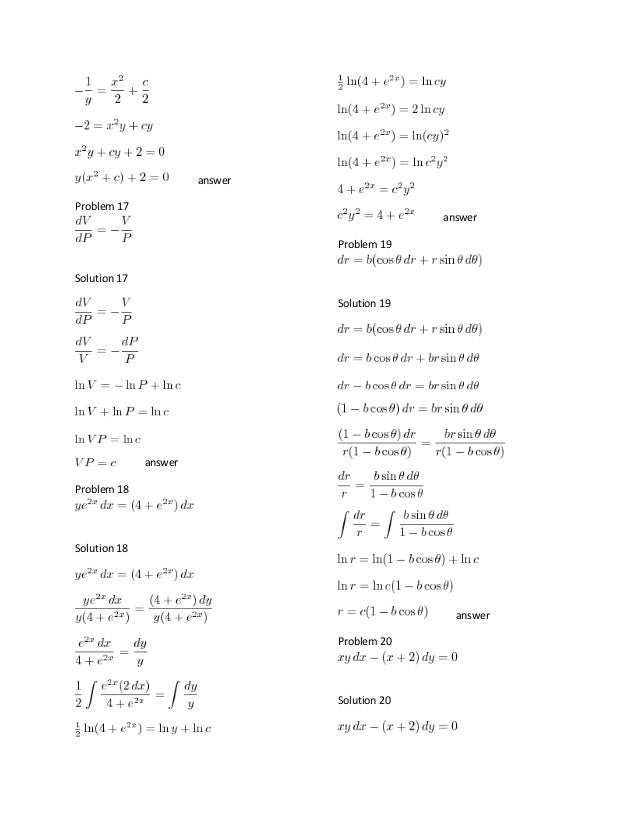 −1/y = x²/2 + c/2
−2 = x²y + cy
x²y + cy + 2 = 0
y(x² + c) + 2 = 0 answer
Problem 17
dV/dP = −V/P
Solution 17
dV/dP = −V/P
dV/V = −dP/P
ln V = − ln P + ln c
ln V + ln P = ln c
ln VP = ln c
VP = c answer
Problem 18
ye²ˣ dx = (4 + e²ˣ) dx
Solution 18
ye²ˣ dx = (4 + e²ˣ) dx
ye²ˣ dx / y(4 + e²ˣ) = (4 + e²ˣ) dy / y(4 + e²ˣ)
e²ˣ dx / 4 + e²ˣ = dy/y
1/2 ∫ e²ˣ(2 dx) / 4 + e²ˣ = ∫ dy/y
½ ln(4 + e²ˣ) = ln y + ln c
½ ln(4 + e²ˣ) = ln cy
ln(4 + e²ˣ) = 2 ln cy
ln(4 + e²ˣ) = ln(cy)²
ln(4 + e²ˣ) = ln c²y²
4 + e²ˣ = c²y²
c²y² = 4 + e²ˣ answer
Problem 19
dr = b(cos θ dr + r sin θ dθ)
Solution 19
dr = b(cos θ dr + r sin θ dθ)
dr = b cos θ dr + br sin θ dθ
dr − b cos θ dr = br sin θ dθ
(1 − b cos θ) dr = br sin θ dθ
(1 − b cos θ) dr / r(1 − b cos θ) = br sin θ dθ / r(1 − b cos θ)
dr/r = b sin θ dθ / 1 − b cos θ
∫ dr/r = ∫ b sin θ dθ / 1 − b cos θ
ln r = ln(1 − b cos θ) + ln c
ln r = ln c(1 − b cos θ)
r = c(1 − b cos θ) answer
Problem 20
xy dx − (x + 2) dy = 0
Solution 20
xy dx − (x + 2) dy = 0